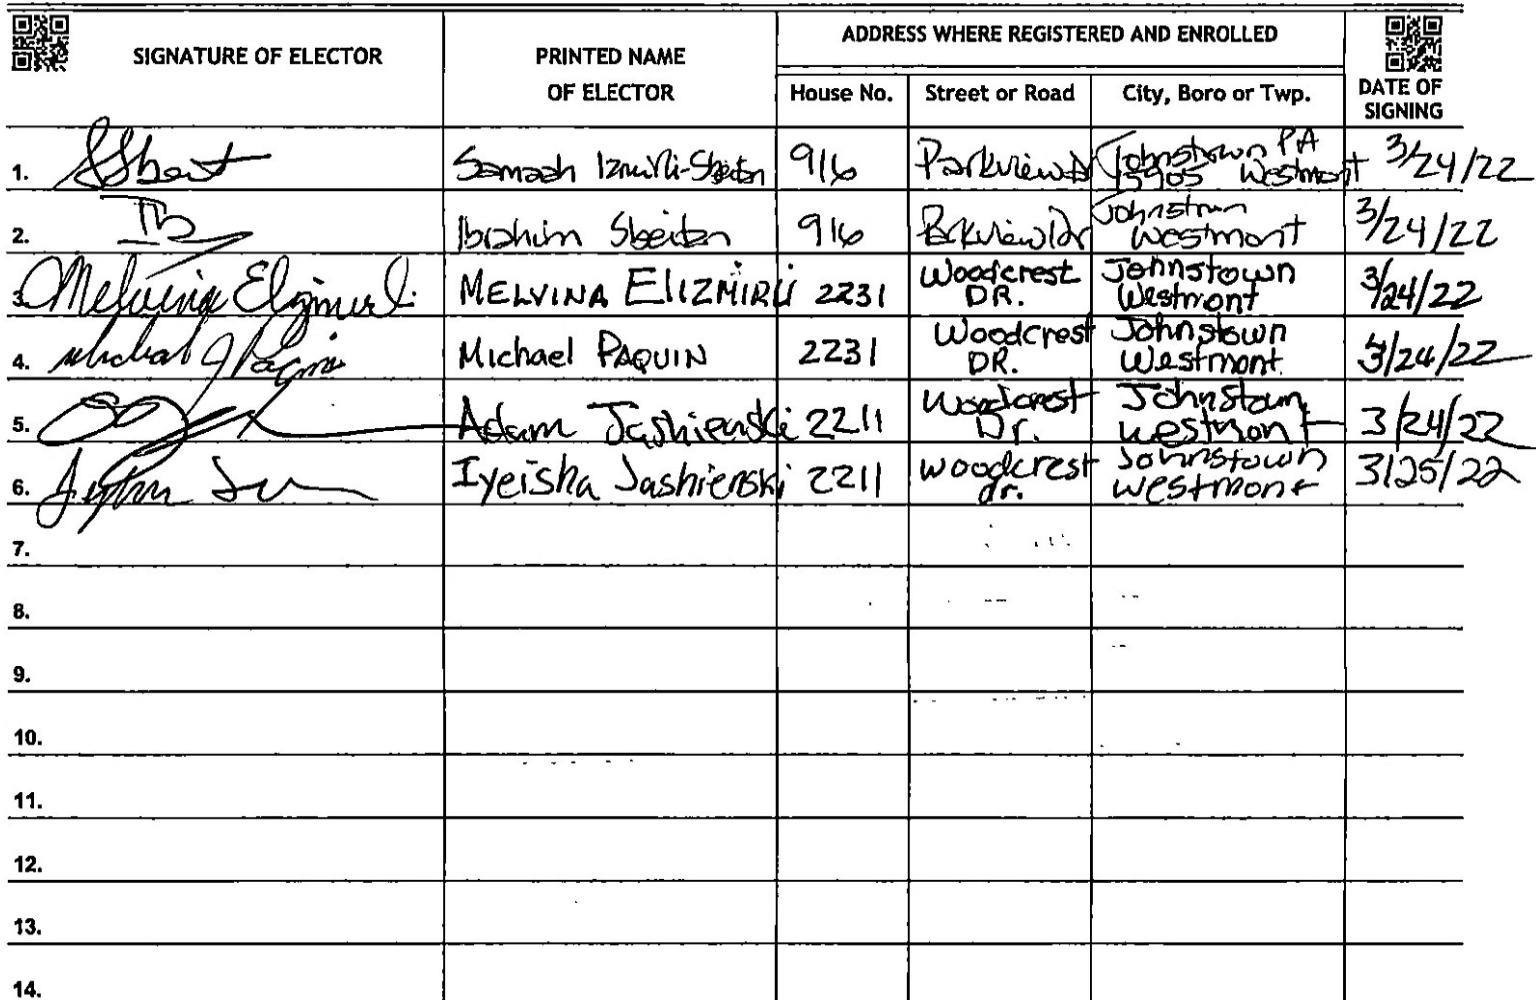 SIGNATURE OF ELECTOR
PRINTED NAME
OF ELECTOR
ADDRESS WHERE REGISTERED AND ENROLLED
House No.
Street or Road
City, Boro or Twp.
DATE OF
SIGNING
1. Samaah Izmirli-Sbeitan 916 Parkview Dr Johnstown PA 15905 Westmont 3/24/22
2. Ibrahim Sbeitan 916 Parkview Dr Johnstown Westmont 3/24/22
3. Melvina Elizmirli MELVINA ElIZMIRLI 2231 Woodcrest DR. Johnstown Westmont 3/24/22
4. Michael PAQUIN 2231 Woodcrest DR. Johnstown Westmont 3/24/22
5. Adam Jashienski 2211 Woodcrest Dr. Johnstown Westmont 3/24/22
6. Iyeisha Jashienski 2211 woodcrest dr. Johnstown westmont 3/25/22
7.
8.
9.
10.
11.
12.
13.
14.